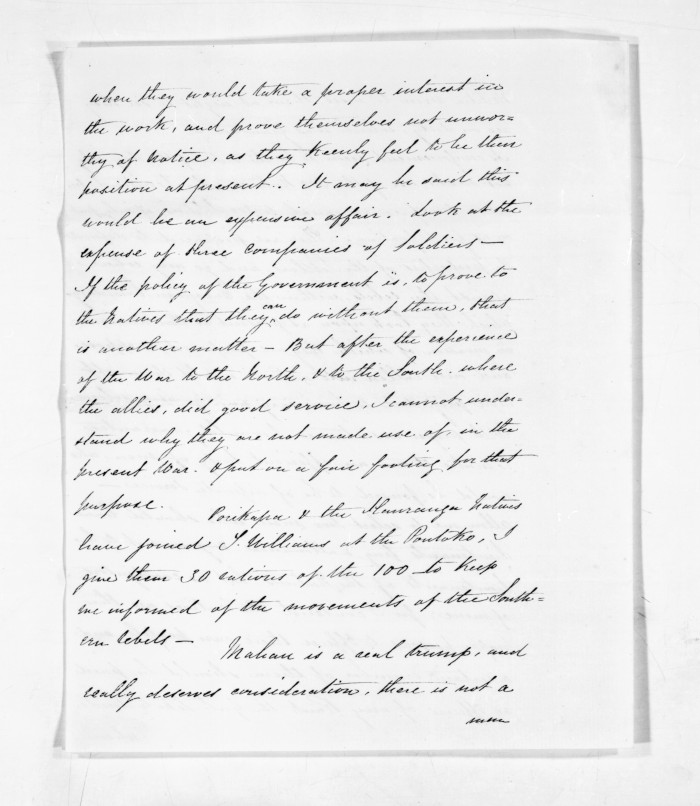 when they would take a proper interest in
the work, and prove themselves not unwor=
thy of notice, as they Keenly feel to be their
position at present. It may be said this
would be an expensive affair. Look at the
expense of three companies of Soldiers—
If the policy of the Government is, to prove to
the Natives that they can do without them, that
is another matter — But after the experience
of the War to the North, & to the South. where
the allies, did good service, I cannot under=
stand why they are not made use of, in the
present War. & put on a fair footing for that
purpose. Porikapa & the Hauranga Natives
have joined S. Williams at the Poutoko, I
give them 30 rations of the 100 to Keep
me informed of the movements of the South=
ern rebels — Mahau is a real trump, and
really deserves consideration, there is not a
man